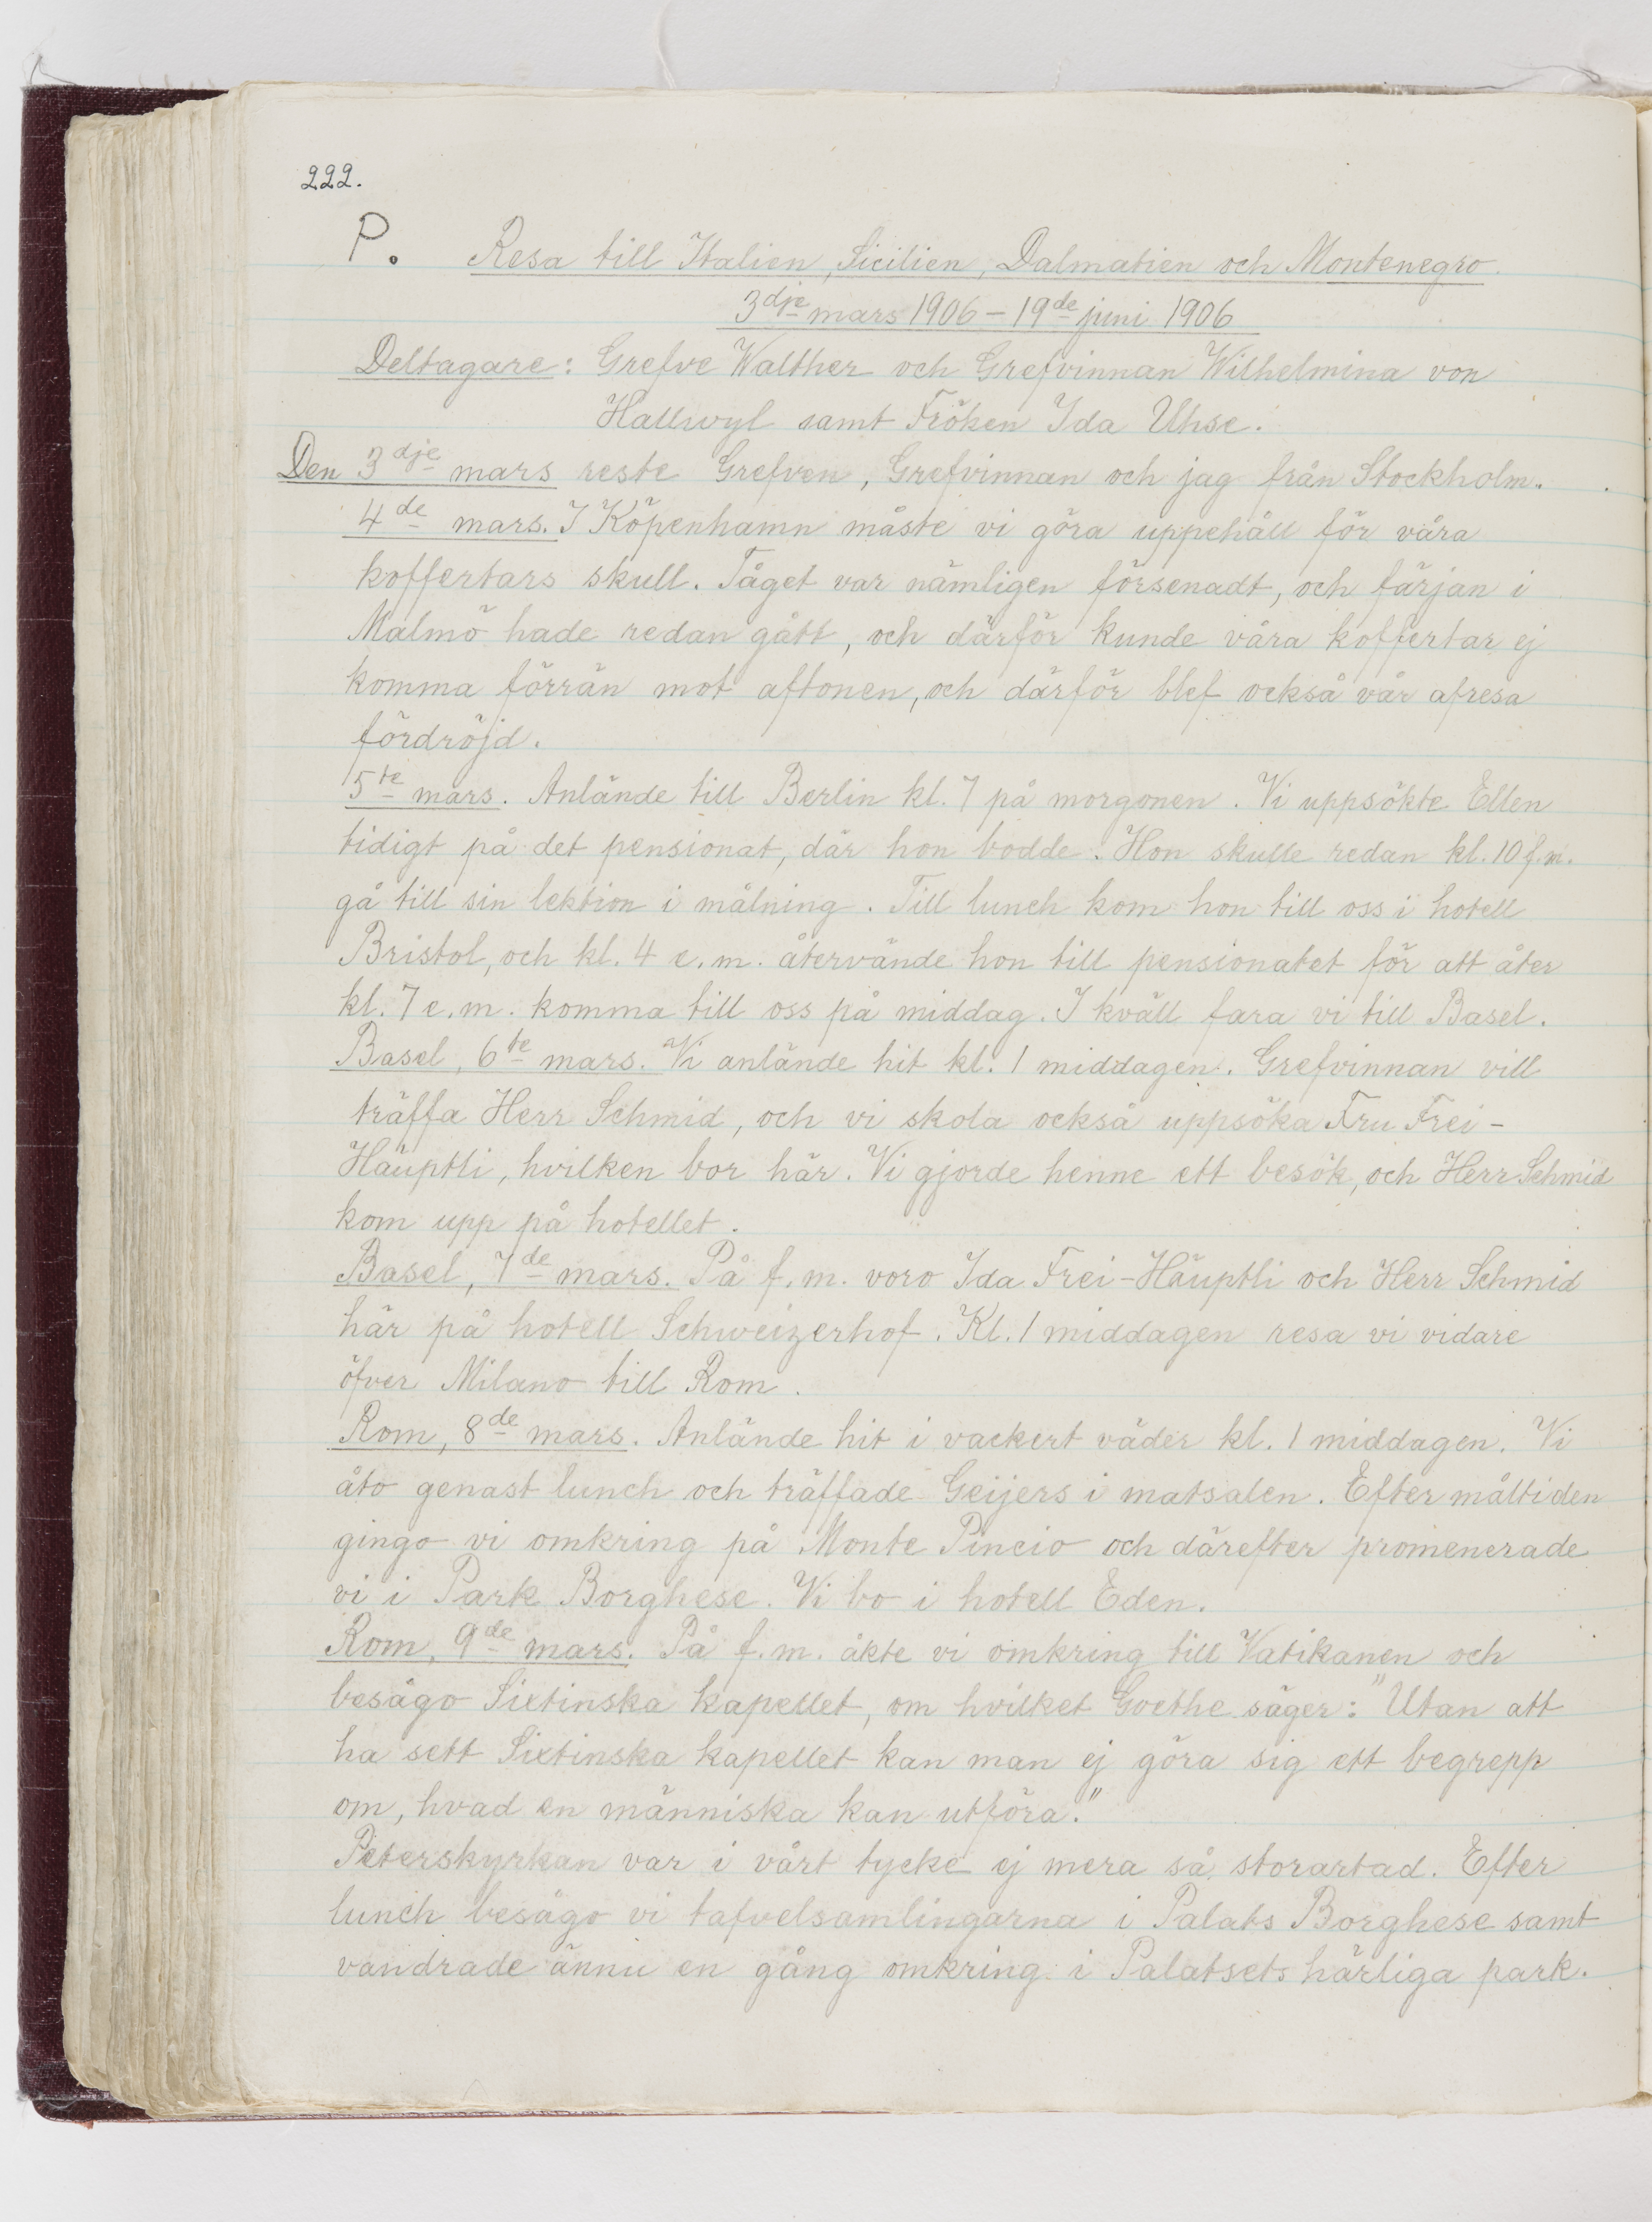 222.
P. Resa till Italien, Sicilien, Dalmatien och Montenegro.
3dje mars 1906 – 19de juni 1906
Deltagare: Grefve Walther och Grefvinnan Wilhelmina von
Hallwyl samt Fröken Ida Uhse.
Den 3dje mars reste Grefven, Grefvinnan och jag från Stockholm.
4de mars. I Köpenhamn måste vi göra uppehåll för våra
koffertars skull. Tåget var nämligen försenadt, och färjan i
Malmö hade redan gått, och därför kunde våra koffertar ej
komma förrän mot aftonen, och därför blef också vår afresa
fördröjd.
5te mars. Anlände till Berlin kl. 7 på morgonen. Vi uppsökte Ellen
tidigt på det pensionat, där hon bodde. Hon skulle redan kl. 10 f.m.
gå till sin lektion i målning. Till lunch kom hon till oss i hotell
Bristol, och kl. 4 e.m. återvände hon till pensionatet för att åter
kl. 7 e.m. komma till oss på middag. I kväll fara vi till Basel.
Basel, 6te mars. Vi anlände hit kl. 1 middagen. Grefvinnan vill
träffa Herr Schmid, och vi skola också uppsöka Fru Frei-
Häuptli, hvilken bor här. Vi gjorde henne ett besök, och Herr Schmid
kom upp på hotellet.
Basel, 7de mars. På f.m. voro Ida Frei-Häuptli och Herr Schmid
här på hotell Schweizerhof. Kl. 1 middagen resa vi vidare
öfver Milano till Rom.
Rom, 8de mars. Anlände hit i vackert väder kl. 1 middagen. Vi
åto genast lunch och träffade Geijers i matsalen. Efter måltiden
gingo vi omkring på Monte Pincio och därefter promenerade
vi i Park Borghese. Vi bo i hotell Eden.
Rom, 9de mars. På f.m. åkte vi omkring till Vatikanen och
besågo Sixtinska kapellet, om hvilket Goethe säger: "Utan att
ha sett Sixtinska kapellet kan man ej göra sig ett begrepp
om, hvad en människa kan utföra."
Peterskyrkan var i vårt tycke ej mera så storartad. Efter
lunch besågo vi tafvelsamlingarna i Palats Borghese samt
vandrade ännu en gång omkring i Palatsets härliga park.